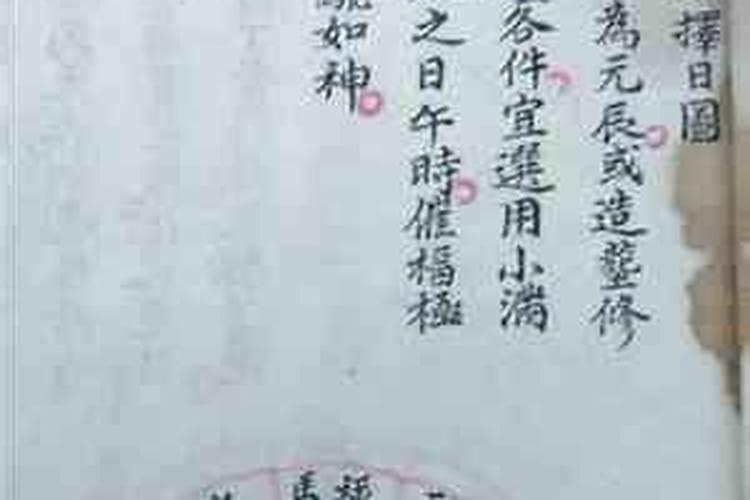 擇日圖
為元辰或造塟修
各件宜選用小滿
之日午時催福極
如神
馬